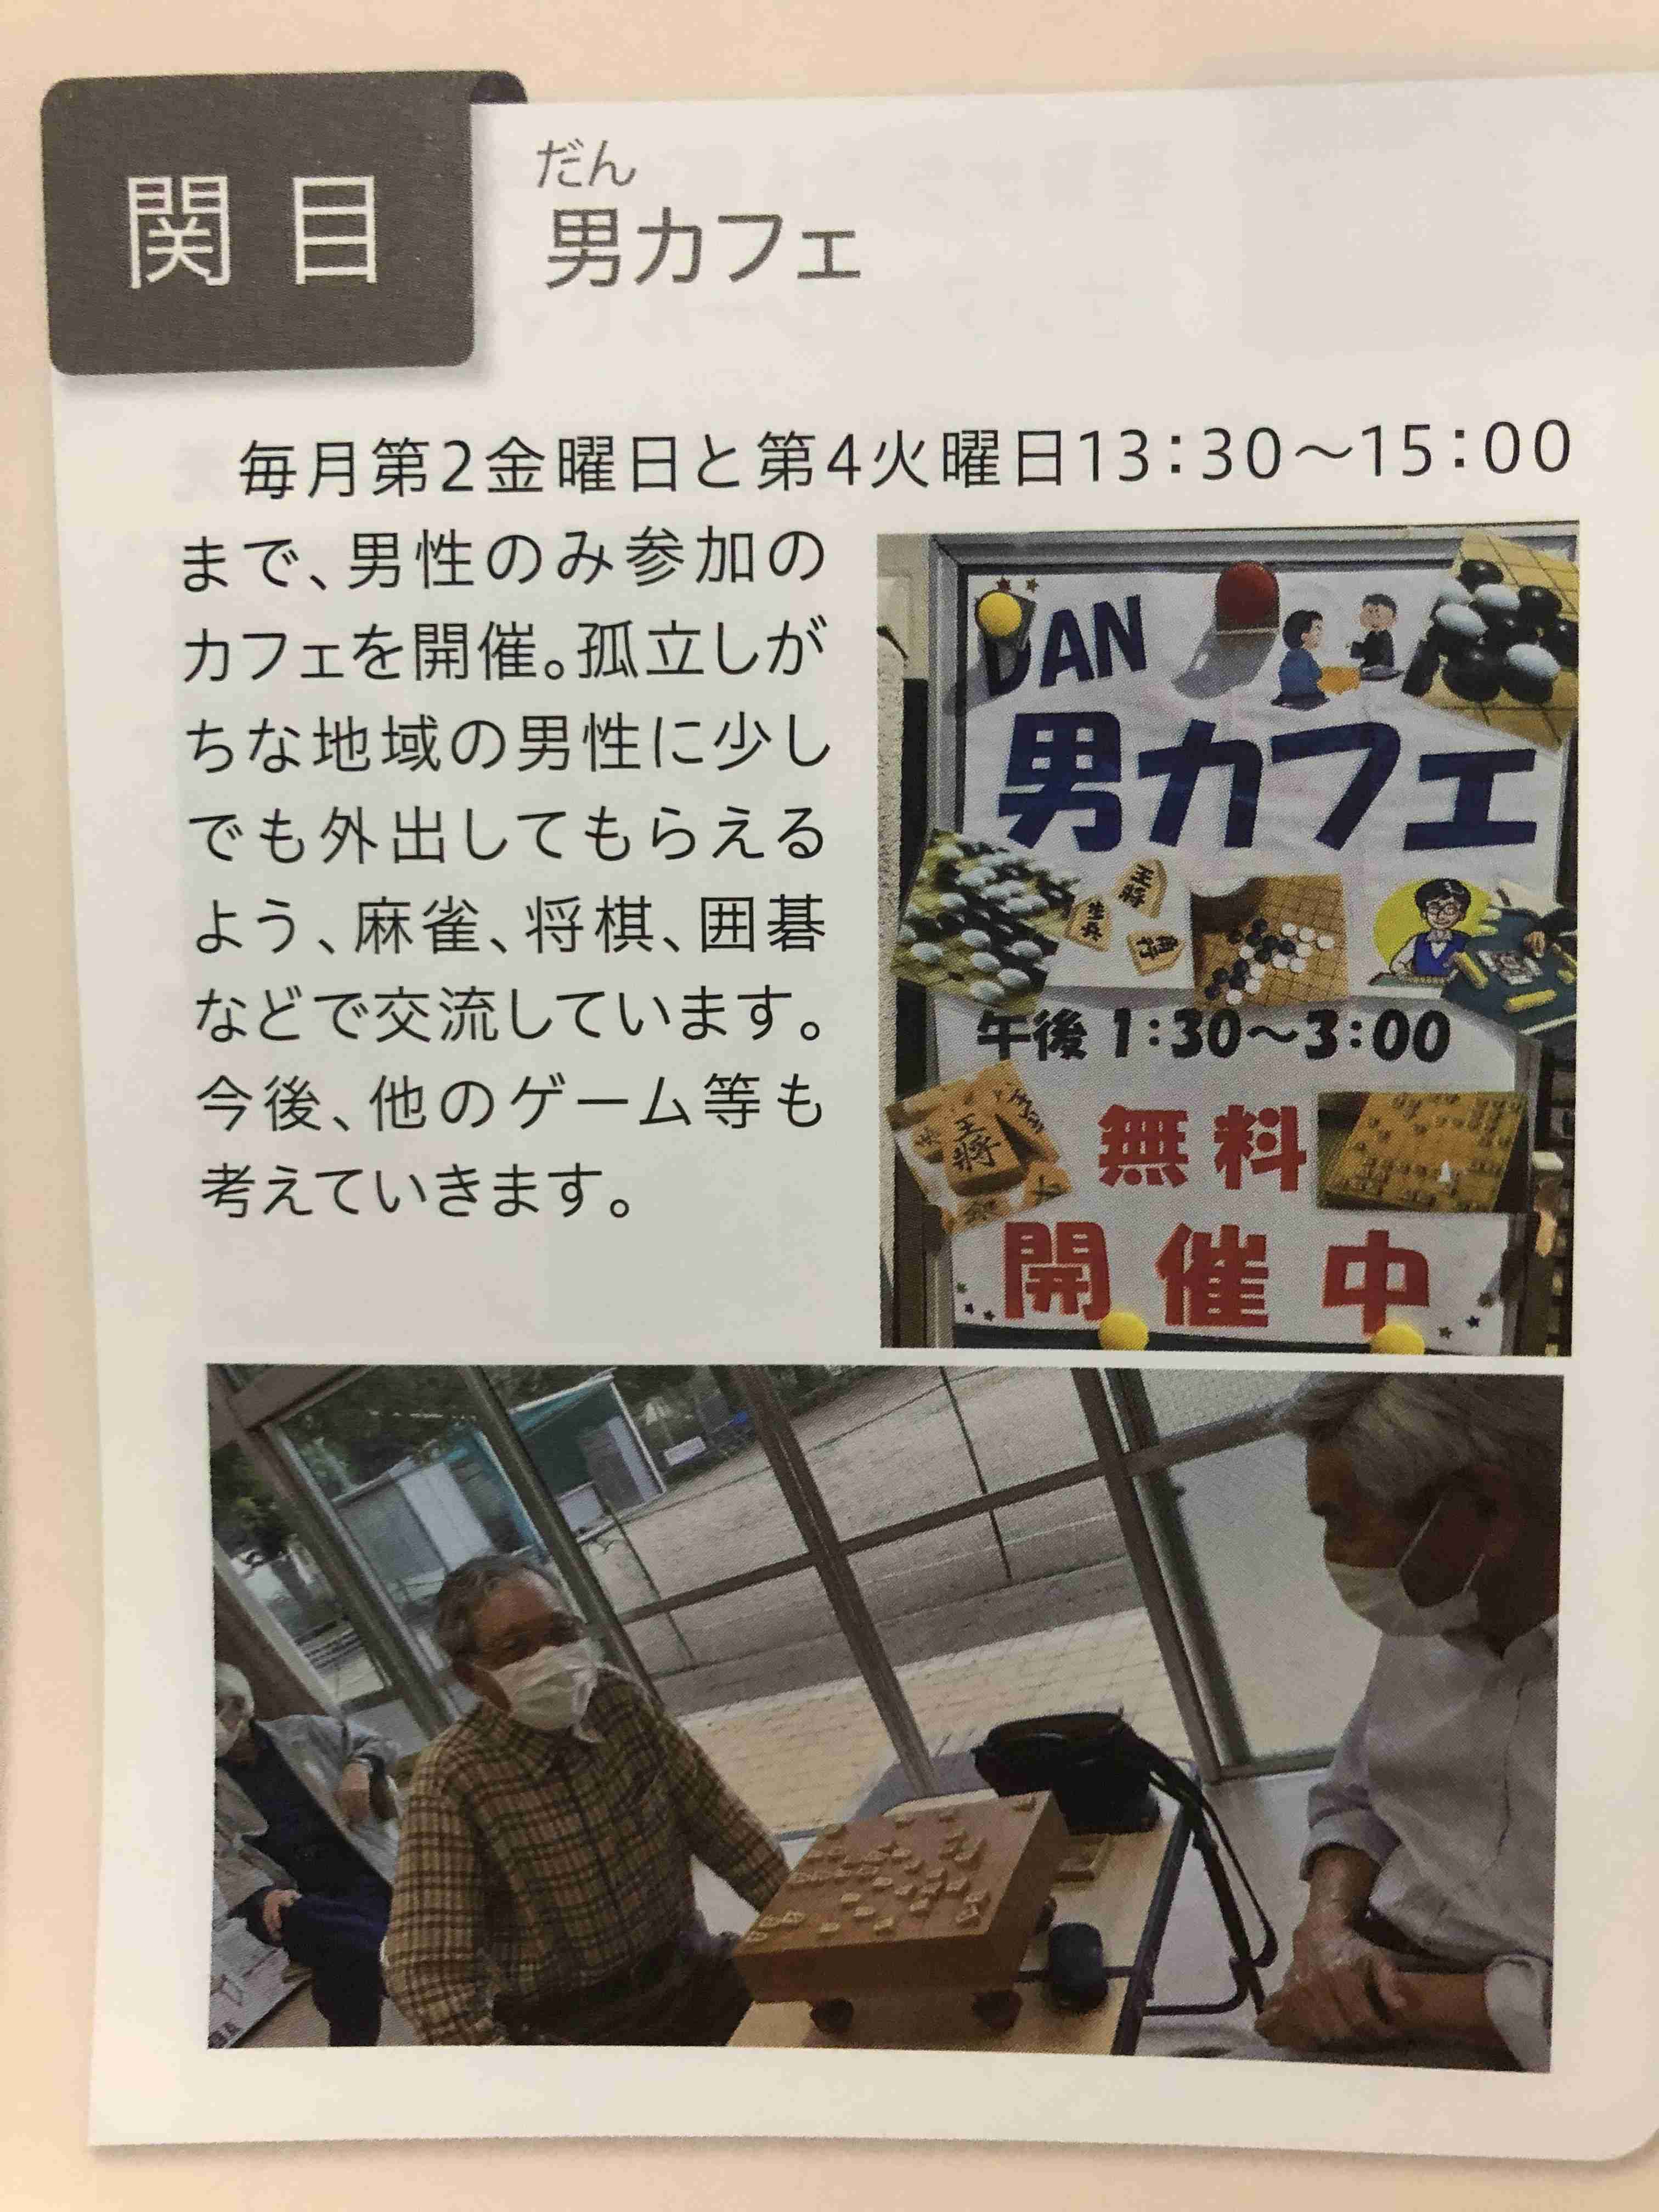 関目
だん
男カフェ
毎月第2金曜日と第4火曜日13:30～15:00
まで、男性のみ参加の
カフェを開催。孤立しが
ちな地域の男性に少し
でも外出してもらえる
よう、麻雀、将棋、囲碁
などで交流しています。
今後、他のゲーム等も
考えていきます。
DAN
男カフェ
王将
午後 1:30～3:00
王将
無料
開催中